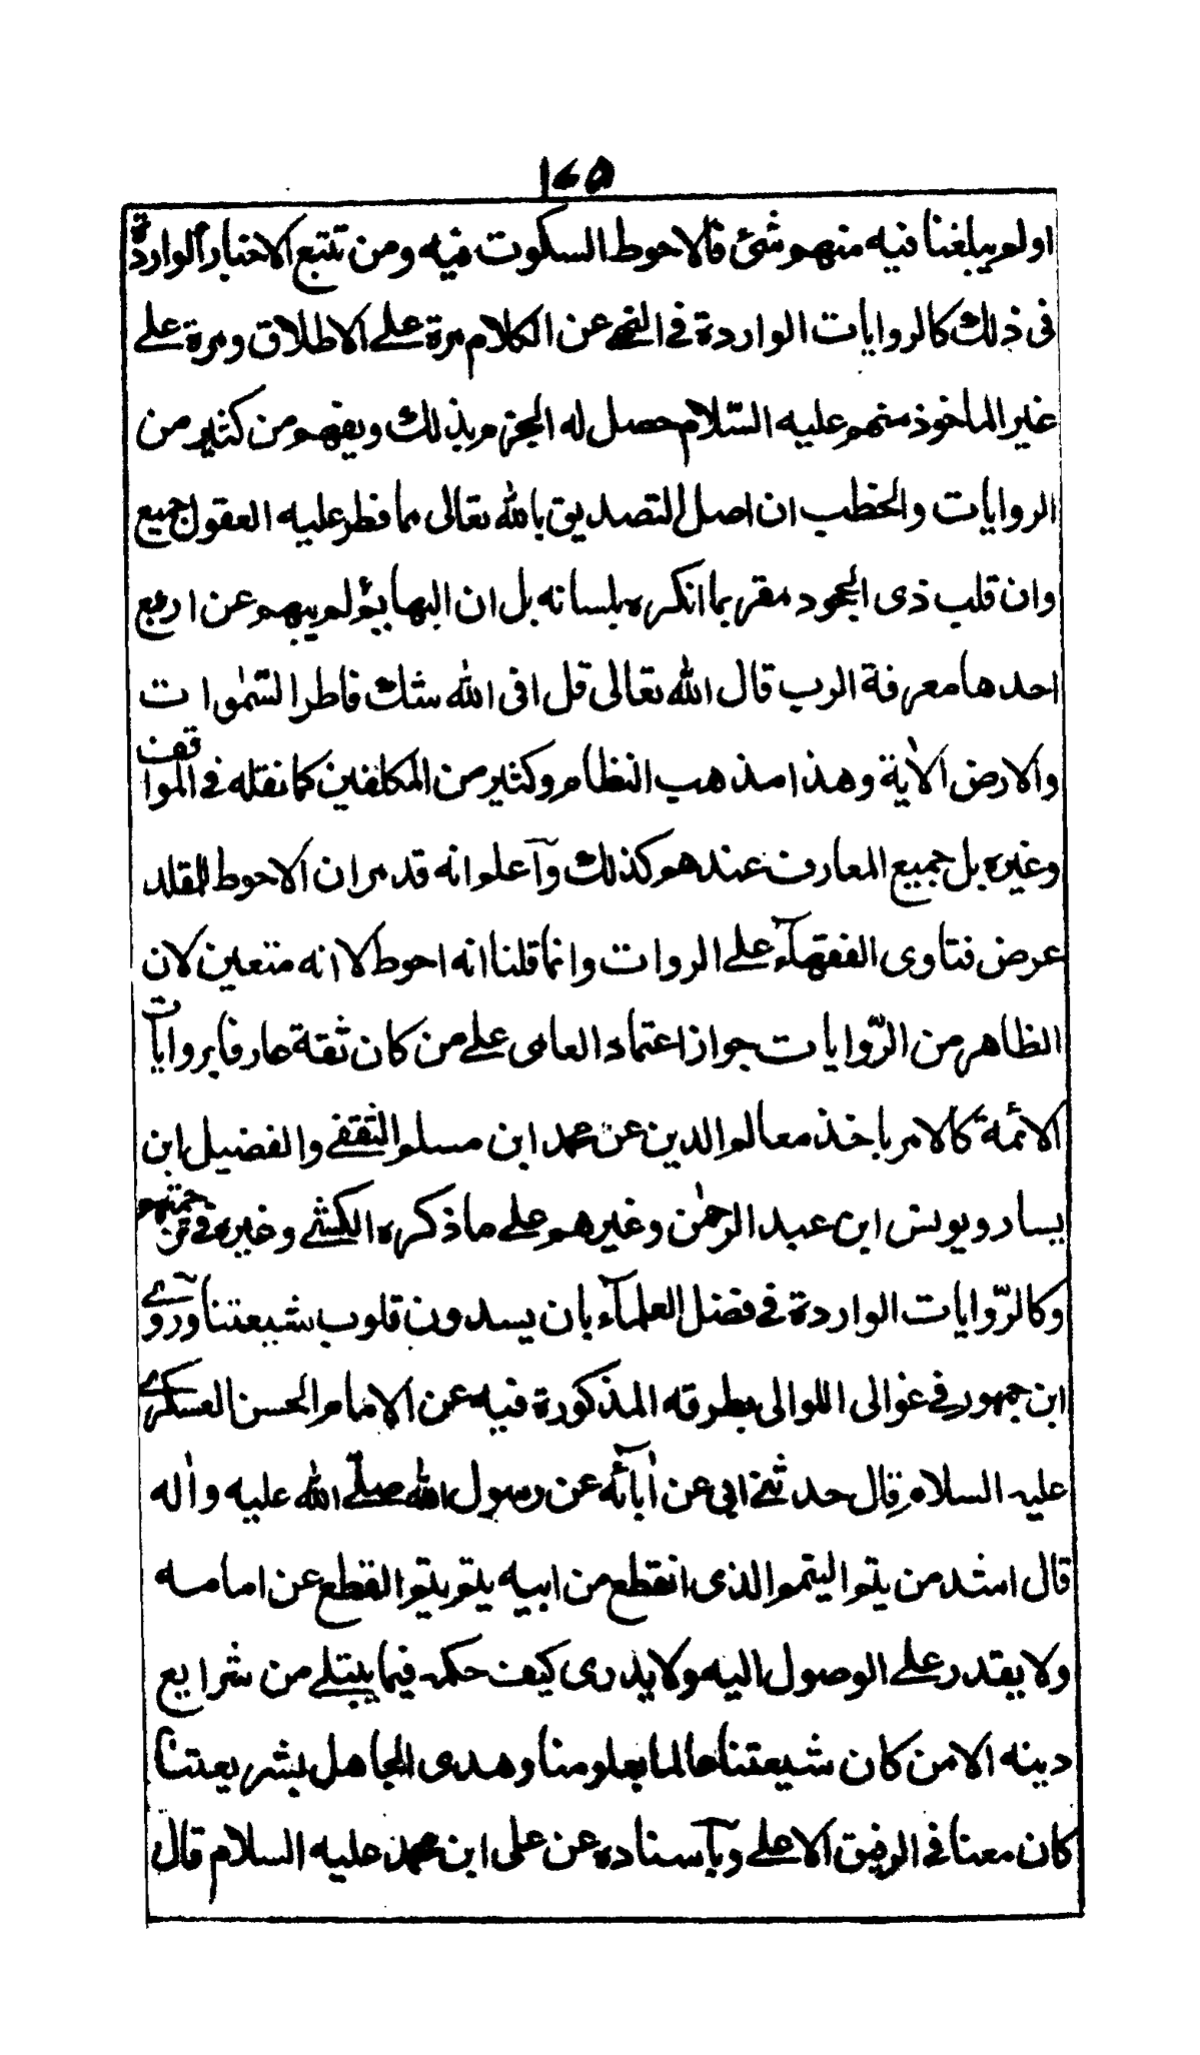 ١٦٥
اولم يبلغنا فيه منهم شئ فالاحوط السكوت فيه ومن تتبع الاخبار الواردة
فى ذلك كالروايات الواردة في النهي عن الكلام مرة علے الاطلاق ومرة علے
غير الماخوذ منهم عليه السّلام حصل له الجزم بذلك ويفهم من كثير من
الروايات والخطب ان اصل التصديق بالله تعالى مما فطر عليه العقول جميع
وان قلب ذى الجحود مقر بما انكره بلسانه بل ان البهايم لم يبهم عن اربع
احدها معرفة الرب قال الله تعالى قل افى الله شك فاطر السّمٰوات
والارض الاٰية وهذا مذهب النظام وكثير من المكلفين كما نقله في المواقف
وغيره بل جميع المعارف عندهم كذلك وآعلم انه قد مر ان الاحوط للمقلد
عرض فتاوى الفقهآء علے الروات وانما قلنا انه احوط لا انه متعين لان
الظاهر من الرّوايات جواز اعتماد العامى علے من كان ثقة عارفا بروايات
الائمة كالامر باخذ معالم الدين عن محمد ابن مسلم الثقفے والفضيل ابن
يسار ويونس ابن عبد الرحمٰن وغيرهم علے ما ذكره الكشے وغيره في ترجمتهم
وكالرّوايات الواردة في فضل العلمآء بان يسدون قلوب شيعتنا وروے
ابن جمهور في غوالى اللوالى بطرقه المذكورة فيه عن الامام الحسن العسكرے
عليه السلام قال حدثنے ابي عن اٰبائه عن رسول الله صلّے الله عليه واٰله
قال اشد من يتم اليتيم الذى انقطع من ابيه يتم يتيم انقطع عن امامه
ولا يقدر علے الوصول اليه ولا يدرى كيف حكمه فيما يبتلے من شرايع
دينه الا من كان شيعتنا عالما بعلومنا وهدى الجاهل بشريعتنا
كان معنا في الرفيق الاعلے وبآسناده عن على ابن محمد عليه السلام قال